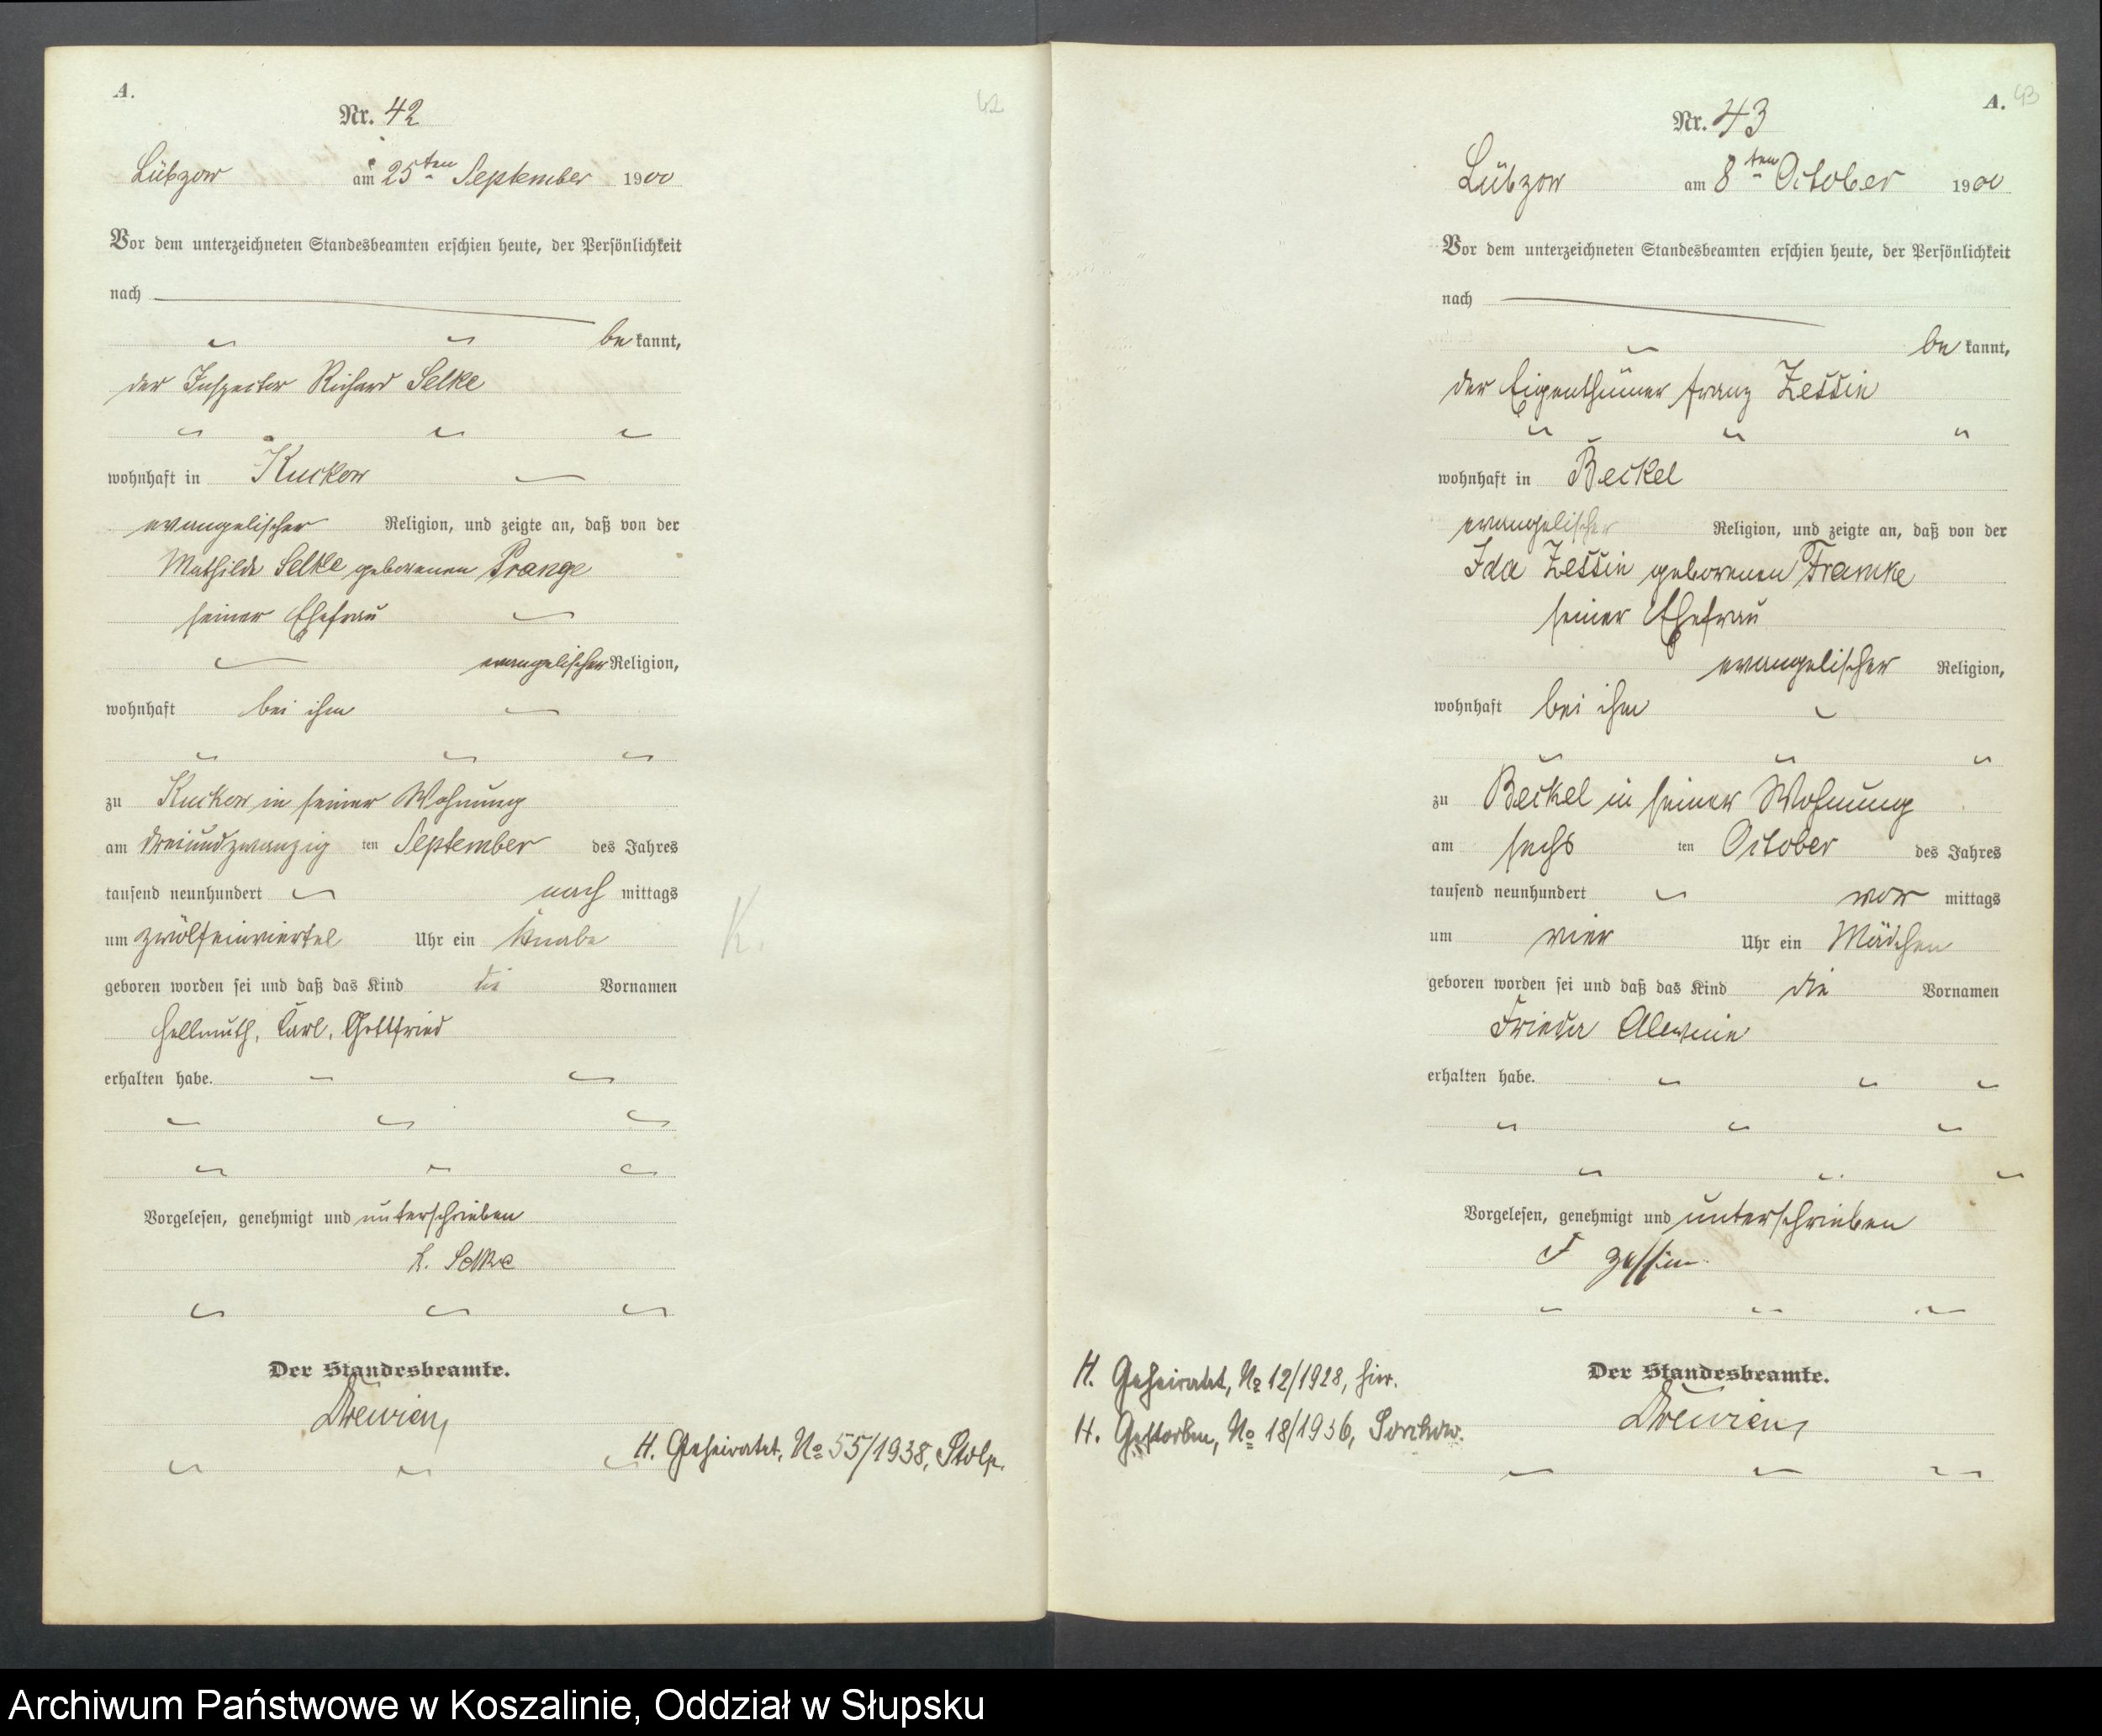 A.
Nr. 42
42
Lübzow am 25ten September 1900
Vor dem unterzeichneten Standesbeamten erschien heute, der Persönlichkeit
nach
be kannt,
der Inspector Richard Selke
wohnhaft in Kuckow
evangelischer Religion, und zeigte an, daß von der
Mathilde Selke geborenen Prange
seiner Ehefrau
evangelischer Religion,
wohnhaft bei ihm
zu Kuckow in seiner Wohnung
am dreiundzwanzig ten September des Jahres
tausend neunhundert nach mittags
um zwölfeinviertel Uhr ein Knabe
K.
geboren worden sei und daß das Kind die Vornamen
Hellmuth, Carl, Gottfried
erhalten habe.
Vorgelesen, genehmigt und unterschrieben
R. Selke
Der Standesbeamte.
Drewien
H. Geheiratet, No 55/1938, Stolp.
A. 43
Nr. 43
Lübzow am 8ten October 1900
Vor dem unterzeichneten Standesbeamten erschien heute, der Persönlichkeit
nach
be kannt,
der Eigenthümer Franz Zessin
wohnhaft in Beckel
evangelischer Religion, und zeigte an, daß von der
Ida Zessin geborenen Framke
seiner Ehefrau
evangelischer Religion,
wohnhaft bei ihm
zu Beckel in seiner Wohnung
am sechs ten October des Jahres
tausend neunhundert vor mittags
um vier Uhr ein Mädchen
geboren worden sei und daß das Kind die Vornamen
Frieda Alwine
erhalten habe.
Vorgelesen, genehmigt und unterschrieben
F Zessin
Der Standesbeamte.
Drewien
H. Geheiratet, No 12/1928, hier.
H. Gestorben, No 18/1936, Sorchow.
Archiwum Państwowe w Koszalinie, Oddział w Słupsku